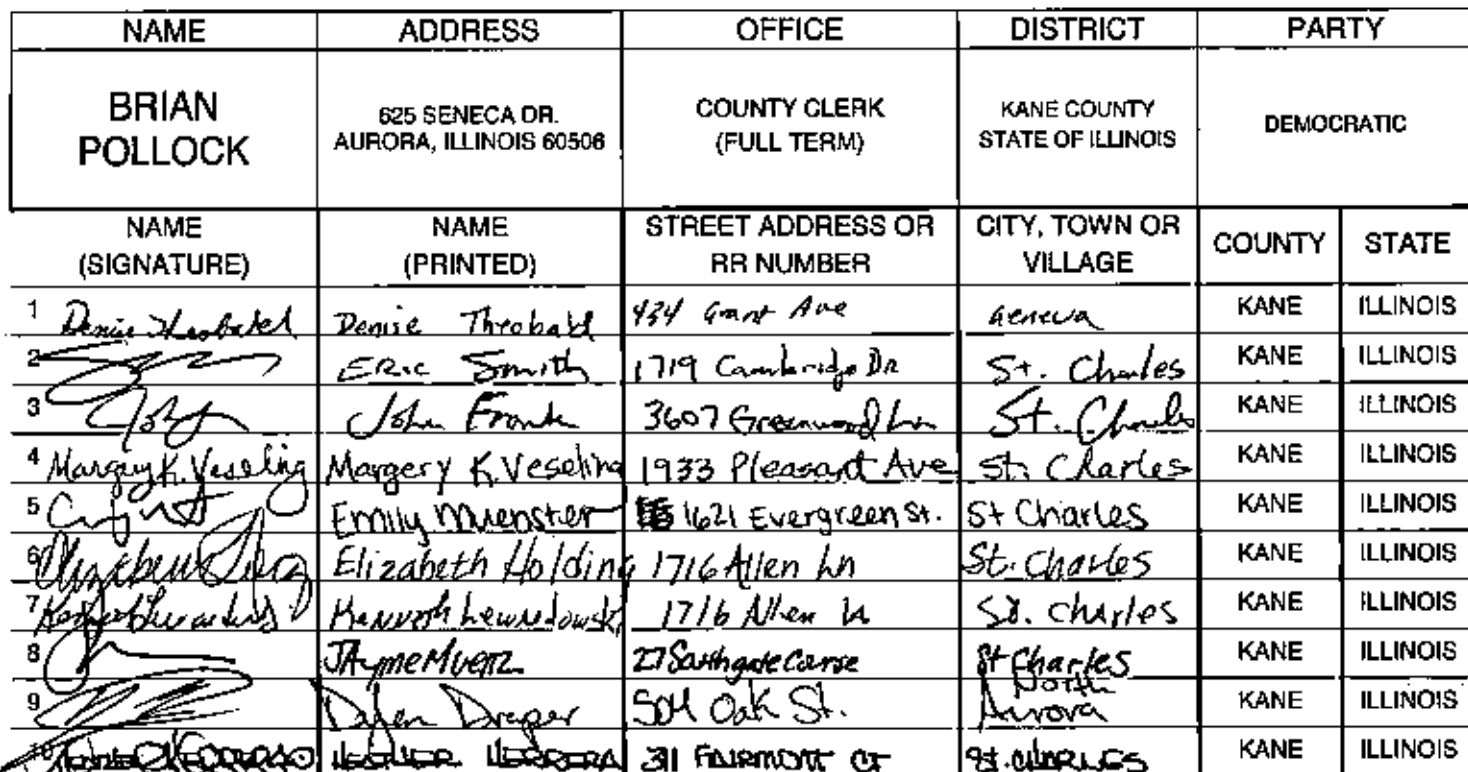 NAME ADDRESS OFFICE DISTRICT PARTY
BRIAN POLLOCK
625 SENECA DR. AURORA, ILLINOIS 60506
COUNTY CLERK (FULL TERM)
KANE COUNTY STATE OF ILLINOIS
DEMOCRATIC
NAME (SIGNATURE) NAME (PRINTED) STREET ADDRESS OR RR NUMBER CITY, TOWN OR VILLAGE COUNTY STATE
1 Denise Theobald Denise Theobald 434 Grant Ave Geneva KANE ILLINOIS
2 ERic Smith 1719 Cambridge DR St. Charles KANE ILLINOIS
3 John Frank 3607 Greenwood Ln St. Charles KANE ILLINOIS
4 Margery K. Veseling Margery K. Veseling 1933 Pleasant Ave St. Charles KANE ILLINOIS
5 Emily Muenster 1621 Evergreen St. St Charles KANE ILLINOIS
6 Elizabeth Elizabeth Holding 1716 Allen Ln St. Charles KANE ILLINOIS
7 Kenneth Lewandowski 1716 Allen Ln St. Charles KANE ILLINOIS
8 JAyme Muenz 27 Southgate Course St Charles KANE ILLINOIS
9 Draper 504 Oak St. North Aurora KANE ILLINOIS
10 HERRERA 311 FAIRMONT CT ST. CHARLES KANE ILLINOIS